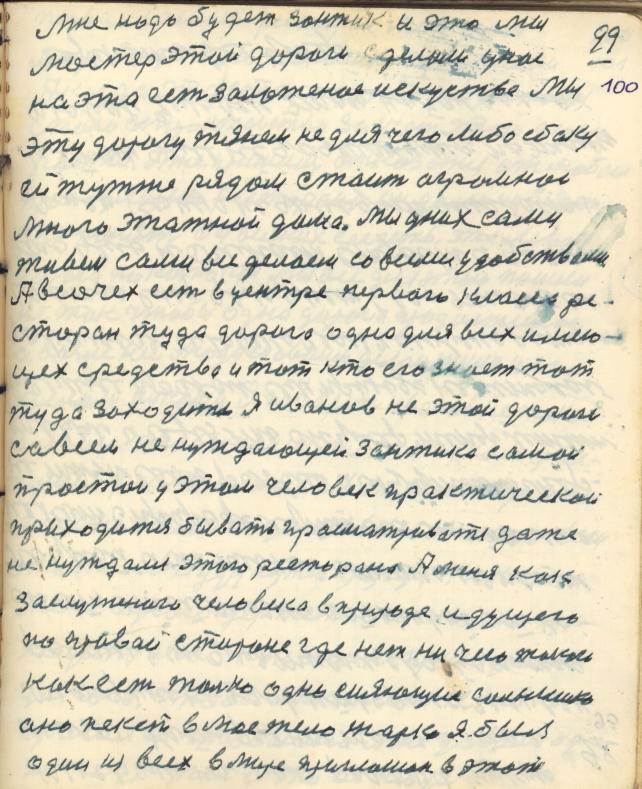 мне надо будет зонтик и это мы
99
мостер этой дороги сделали
100
на эта ест заложеное искуства мы
эту дорогу тянем не для чего либо сбоку
ей тутже рядом стоит огромное
много этажной дома. мы в них сами
живем сами все делаем со всеми удобствами
А в сочех ест в центре первого класса ре-
сторан туда дорога одна для всех имею-
щех средства и тот кто его знает тот
туда заходить я иванов не этой дороги
савсем не нуждающей зонтика самой
простои у этом человек практической
приходится бывать просматривати даже
не нуждался этого ресторана А меня как
заслуженого человека в природе идущего
по правай стороне где нет ни чего такого
как ест толко одно сияющие солнышко
оно пекет в мое тело жарко я был
один из всех в мире в этом